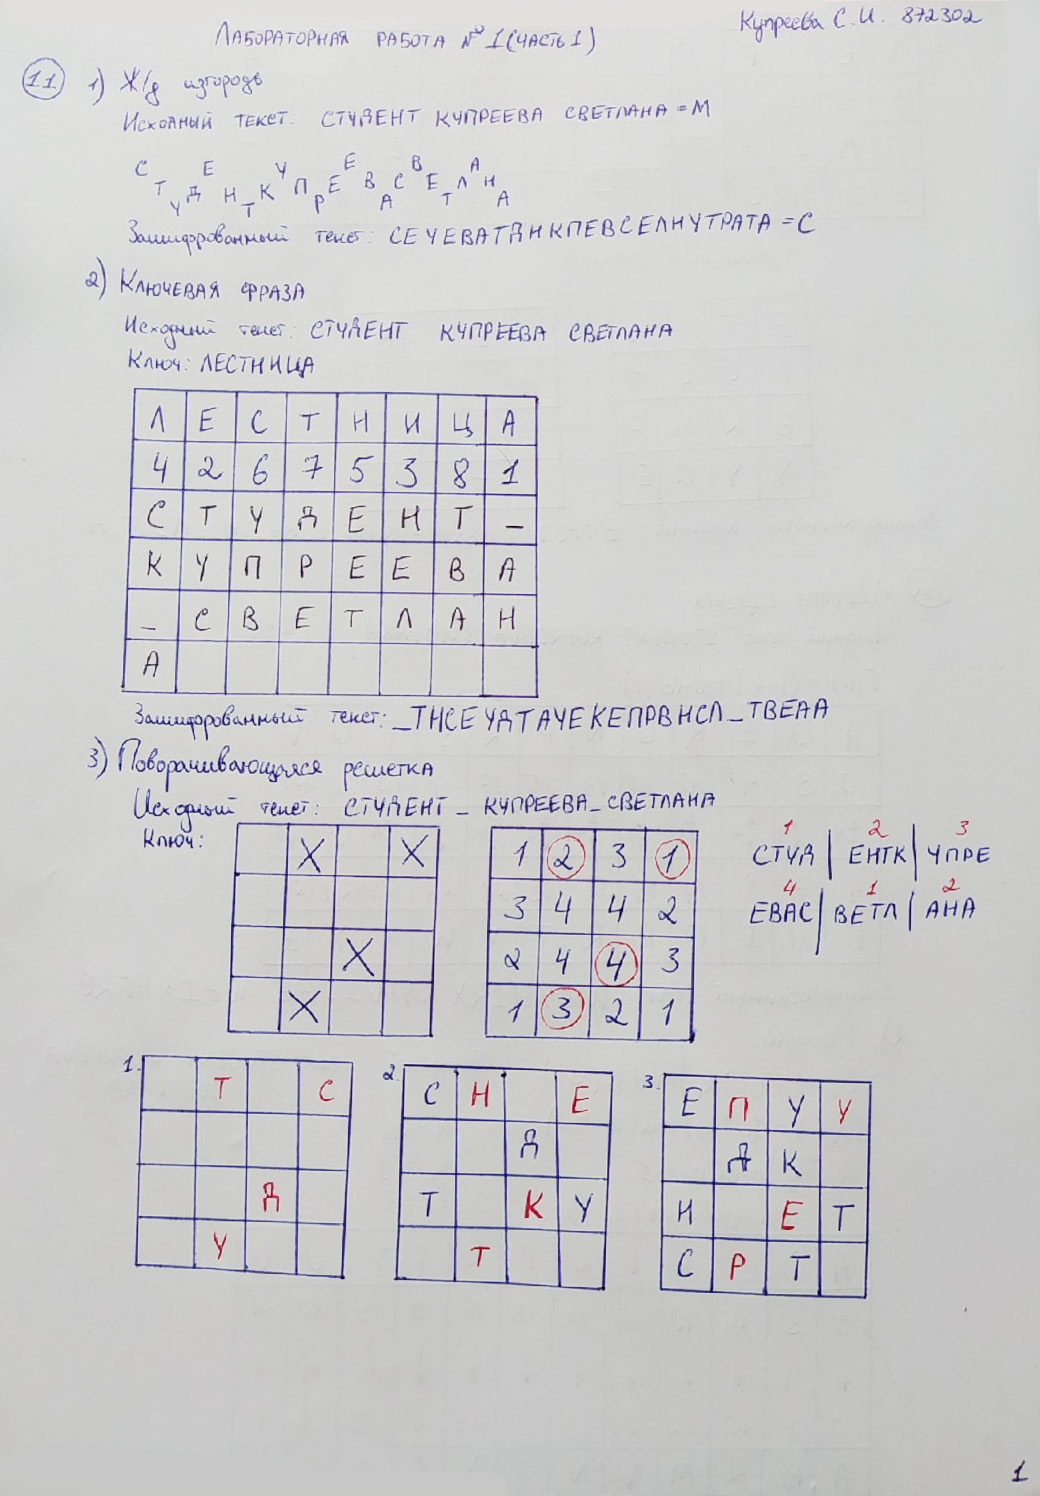 Купреева С.И. 872302
ЛАБОРАТОРНАЯ РАБОТА № 1 (ЧАСТЬ 1)
1.1 1) Ж/д изгородь
Исходный текст: СТУДЕНТ КУПРЕЕВА СВЕТЛАНА = М
С Е У Е В А
Т Д Н К П Е В С Е Л Н
У Т Р А Т А
Зашифрованный текст: СЕУЕВАТДНКПЕВСЕЛНУТРАТА = С
2) Ключевая фраза
Исходный текст: СТУДЕНТ КУПРЕЕВА СВЕТЛАНА
Ключ: ЛЕСТНИЦА
Л Е С Т Н И Ц А
4 2 6 7 5 3 8 1
С Т У Д Е Н Т _
К У П Р Е Е В А
_ С В Е Т Л А Н
А
Зашифрованный текст: _ТНСЕУДТАУЕКЕПРВНСЛ_ТВЕАА
3) Поворачивающаяся решетка
Исходный текст: СТУДЕНТ_КУПРЕЕВА_СВЕТЛАНА
Ключ:
X X
X
X
1 2 3 1
3 4 4 2
2 4 4 3
1 3 2 1
1 2 3
СТУД | ЕНТК | УПРЕ
4 1 2
ЕВАС | ВЕТЛ | АНА
1.
Т С
Д
У
2.
С Н Е
Д
Т К У
Т
3.
Е П У У
Д К
Н Е Т
С Р Т
1